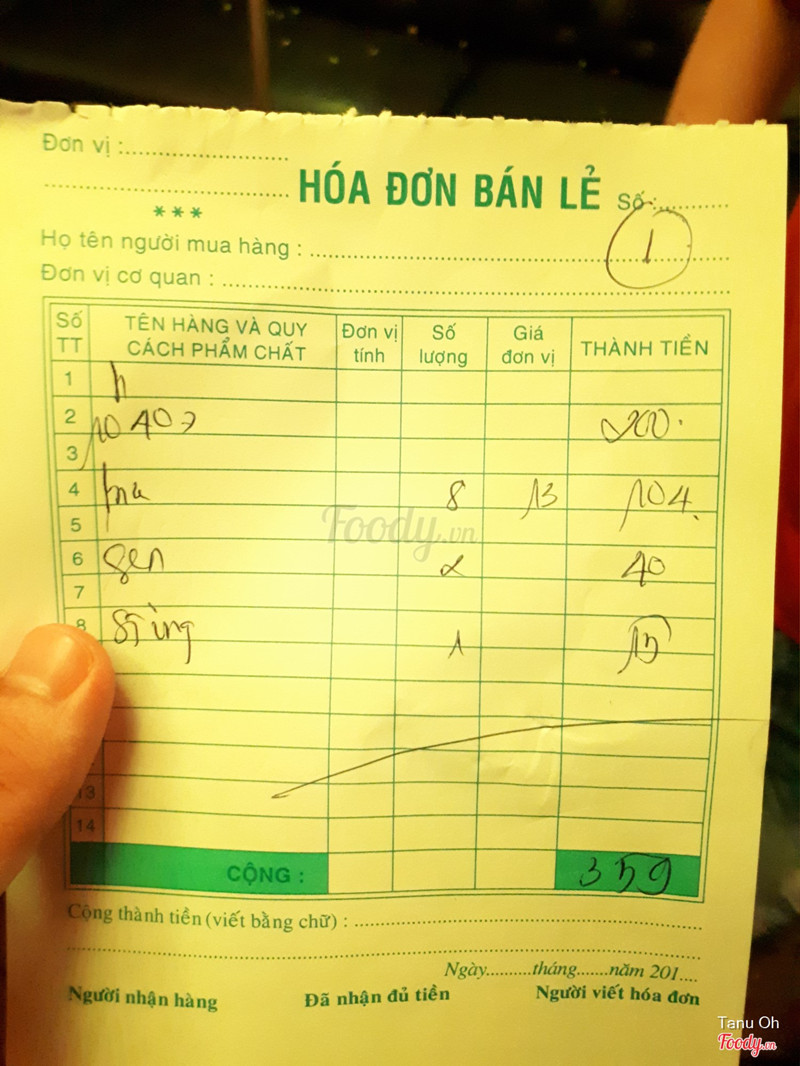 Đơn vị :
HÓA ĐƠN BÁN LẺ Số :
***
1
Họ tên người mua hàng :
Đơn vị cơ quan :
Số TT TÊN HÀNG VÀ QUY CÁCH PHẨM CHẤT Đơn vị tính Số lượng Giá đơn vị THÀNH TIỀN
1 h
2 200
3
4 8 13 104
5
6 sen 2 40
7
8 Sting 1 15
13
14
CỘNG : 359
Cộng thành tiền (viết bằng chữ) :
Ngày tháng năm 201
Người nhận hàng Đã nhận đủ tiền Người viết hóa đơn
Foody.vn
Tanu Oh
Foody.vn